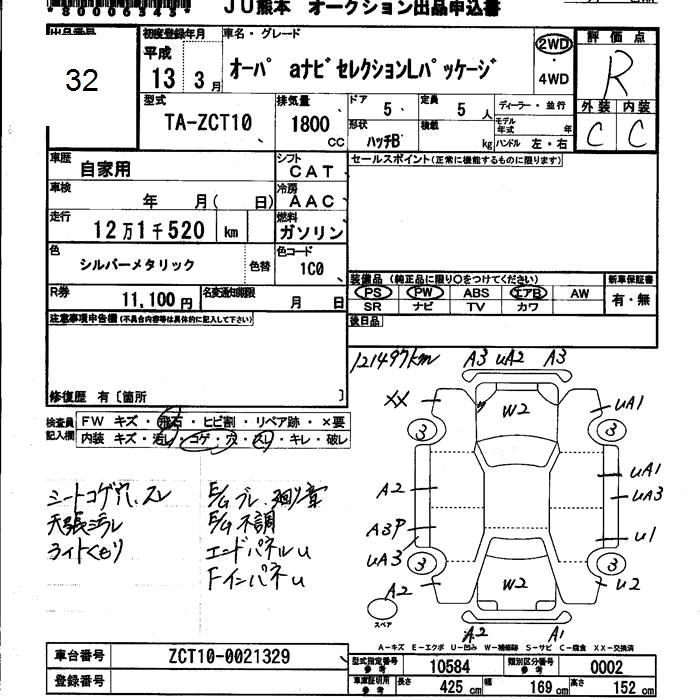 *80006343*
JU熊本 オークション出品申込書
出品番号
32
初度登録年月
平成
13 3月
車名・グレード
オーパ aナビセレクションLパッケージ
2WD
4WD
評価点
R
外装 内装
C C
型式
TA-ZCT10
排気量
1800
cc
ドア 5
定員 5 人
形状
ハッチB
積載
kg
ディーラー・並行
モデル年式 年
ハンドル 左・右
車歴
自家用
シフト
CAT
セールスポイント(正常に機能するものに限ります)
車検
年 月( 日)
冷房
AAC
走行
12万1千520 km
燃料
ガソリン
色
シルバーメタリック
色替
色コード
1C0
装備品 (純正品に限り○をつけてください)
新車保証書
PS PW ABS エアB AW
有・無
SR ナビ TV カワ
R券
11,100円
名変通知期限
月 日
後日品
注意事項申告欄(不具合内容等は具体的に記入して下さい)
修復歴 有〔箇所 〕
121497km
A3 uA2 A3
検査員記入欄
FW キズ・飛石・ヒビ割・リペア跡・×要
内装 キズ・汚レ・コゲ・穴・スレ・キレ・破レ
XX
W2
uA1
3
3
シートコゲ穴、スレ
天張ミラレ
ライトくもり
E/gブレ、廻り音
E/g不調
エンドパネルu
Fインパネu
A2
uA1
uA3
A3P
u1
uA3
3
3
A2
W2
u2
スペア
A2
A1
A-キズ E-エクボ U-凹み W-補修跡 S-サビ C-腐食 XX-交換済
車台番号
ZCT10-0021329
登録番号
型式指定番号
参考
10584
類別区分番号
参考
0002
車庫証明用
参考
長さ 425 cm
幅 169 cm
高さ 152 cm